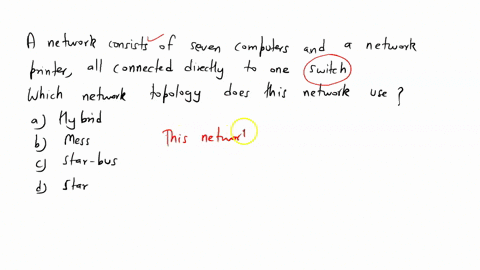 A network consists of seven computers and a network
printer, all connected directly to one switch
Which network topology does this network use ?
a) Hybrid
b) Mess
c) Star-bus
d) Star
This networ